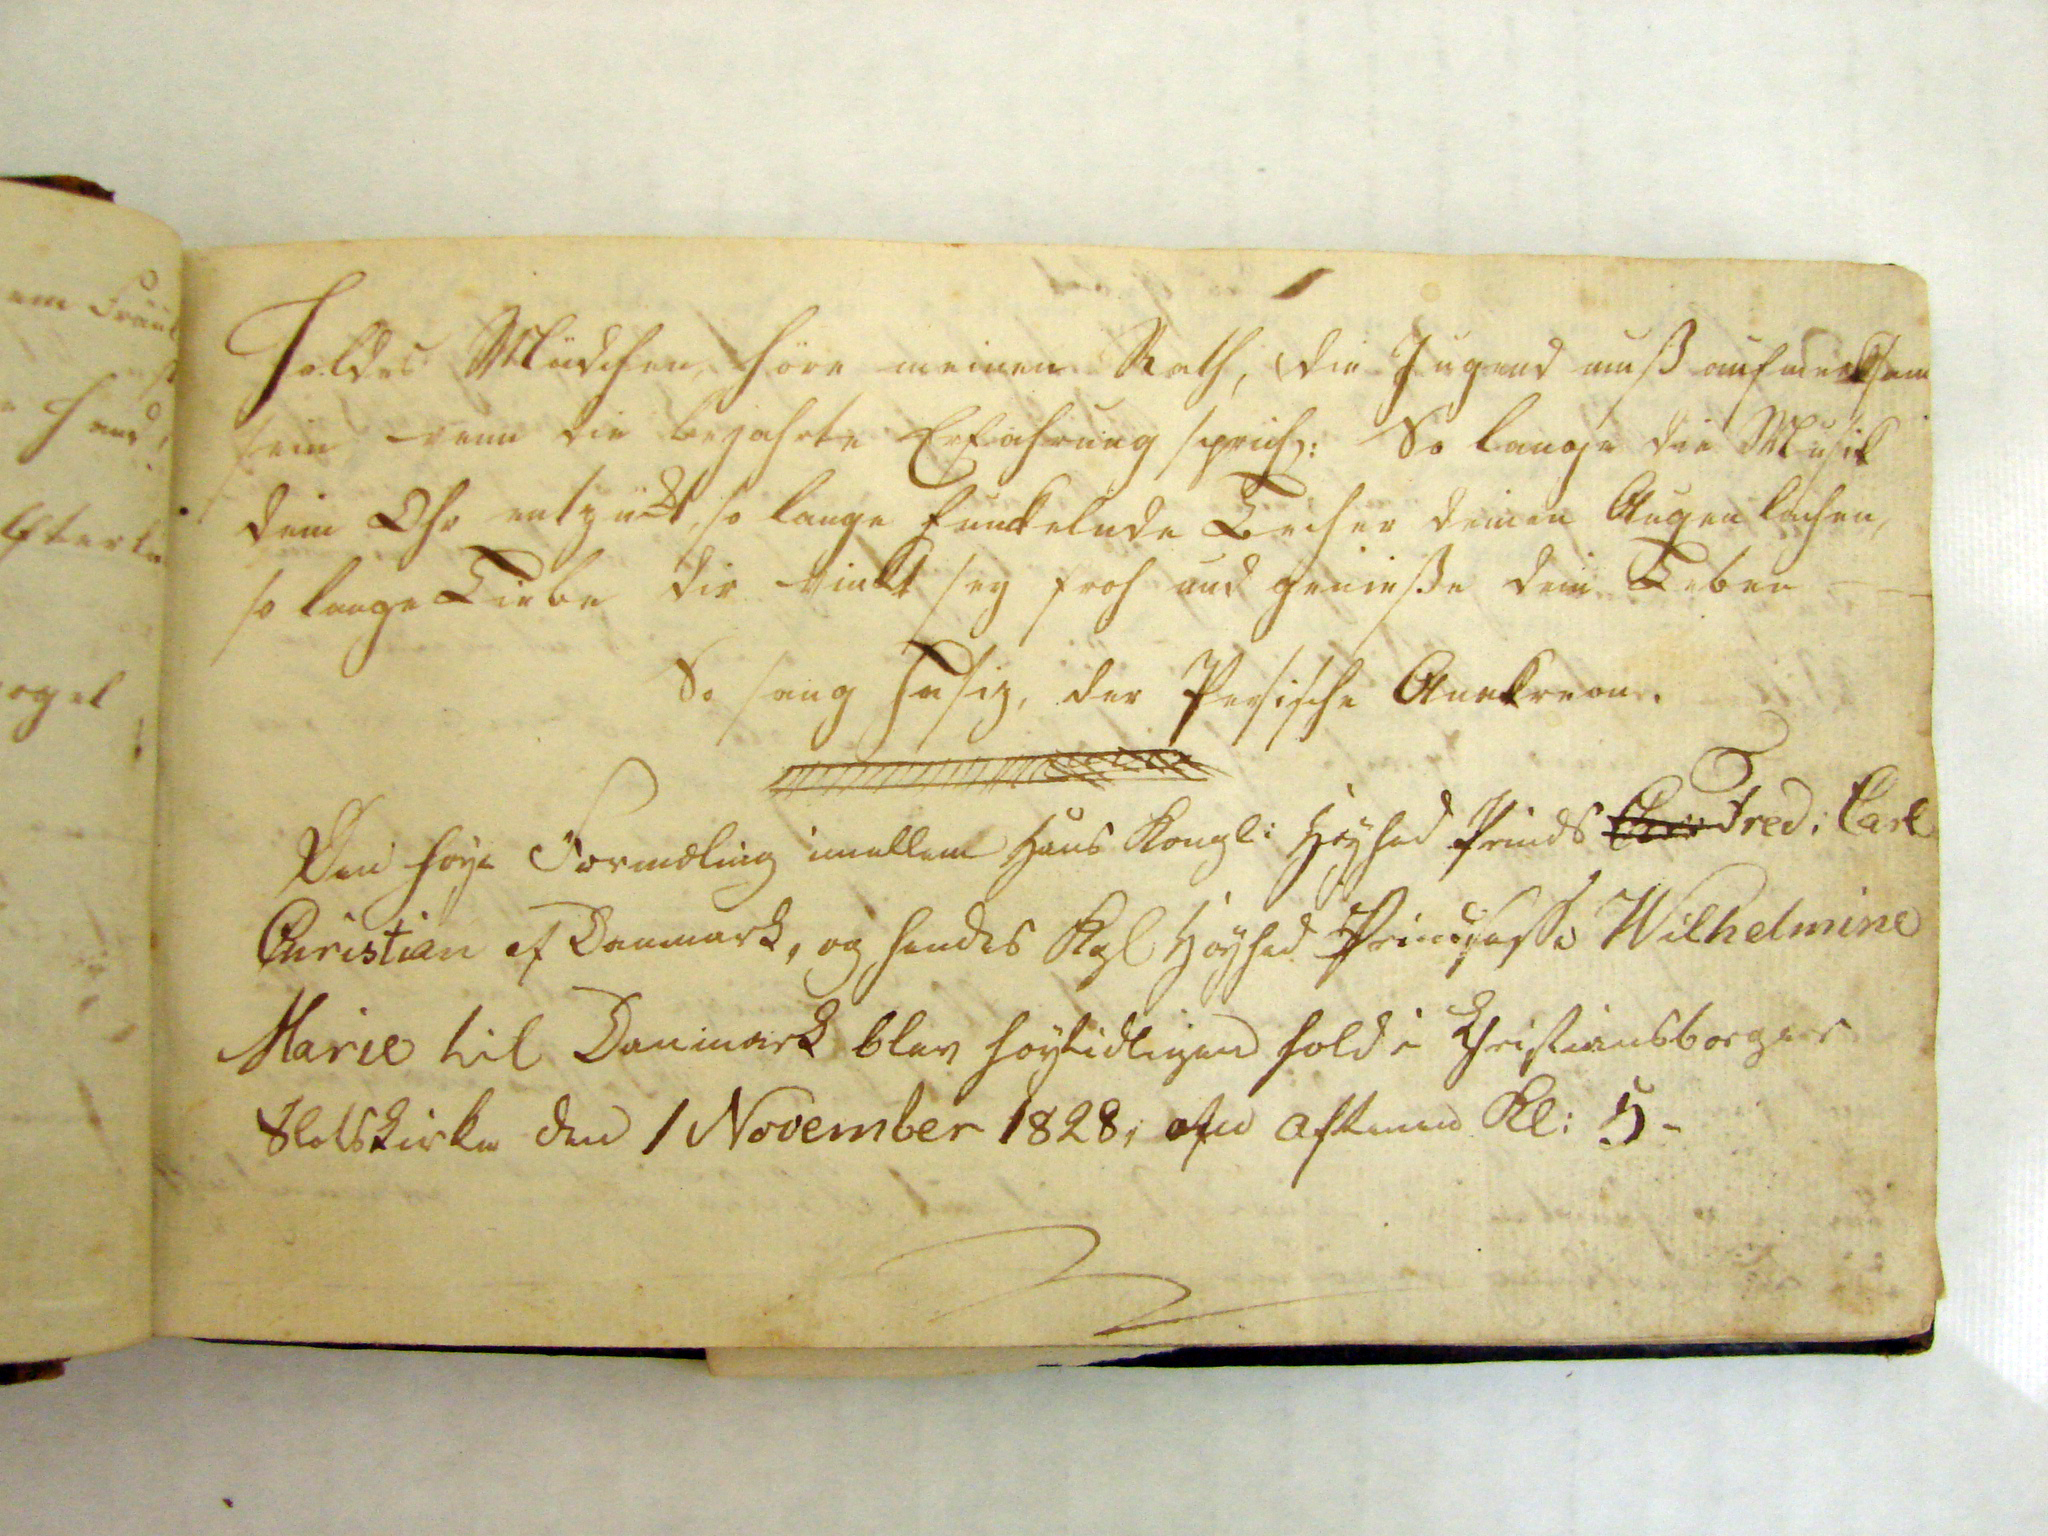 em Fräul
Hand,
Efterla
ogel
Holdes Mädchen, höre meinen Rath, die Jugend muß aufmerksam
sein wenn die bejahrte Erfahrung spricht: So lange die Musik
dein Ohr entzückt, so lange funkelnde Becher deinen Augen lachen,
so lange Liebe dir winkt sey froh und genieße dein Leben — —
So sang Hafiz, der Persische Anakreon.
Den høye Formæling imellem Hans Kongl: Høyhed Prinds Chr Fred: Carl
Christian af Danmark, og hendes Kgl Høyhed Prindsesse Wilhelmine
Marie til Danmark blev høytidligen hold i Christiansborger
Slotskirke den 1 November 1828, Aftenen Kl: 5-